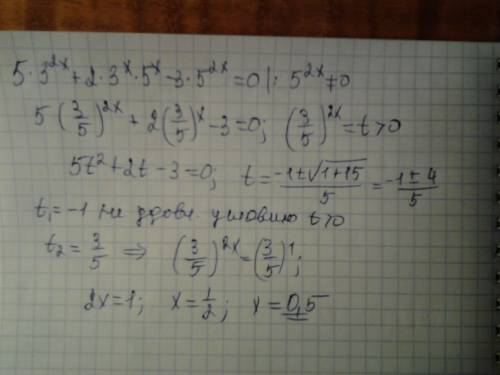 5·3^{2x}+2·3^x·5^x−3·5^{2x}=0 |: 5^{2x}≠0
5(3/5)^{2x}+2(3/5)^x−3=0; (3/5)^{2x}=t>0
5t²+2t−3=0; t=(−1±√(1+15))/5=(−1±4)/5
t₁=−1 не удовл. условию t>0
t₂=3/5 ⇒ (3/5)^{2x}=(3/5)^1;
2x=1; x=1/2; x=0,5